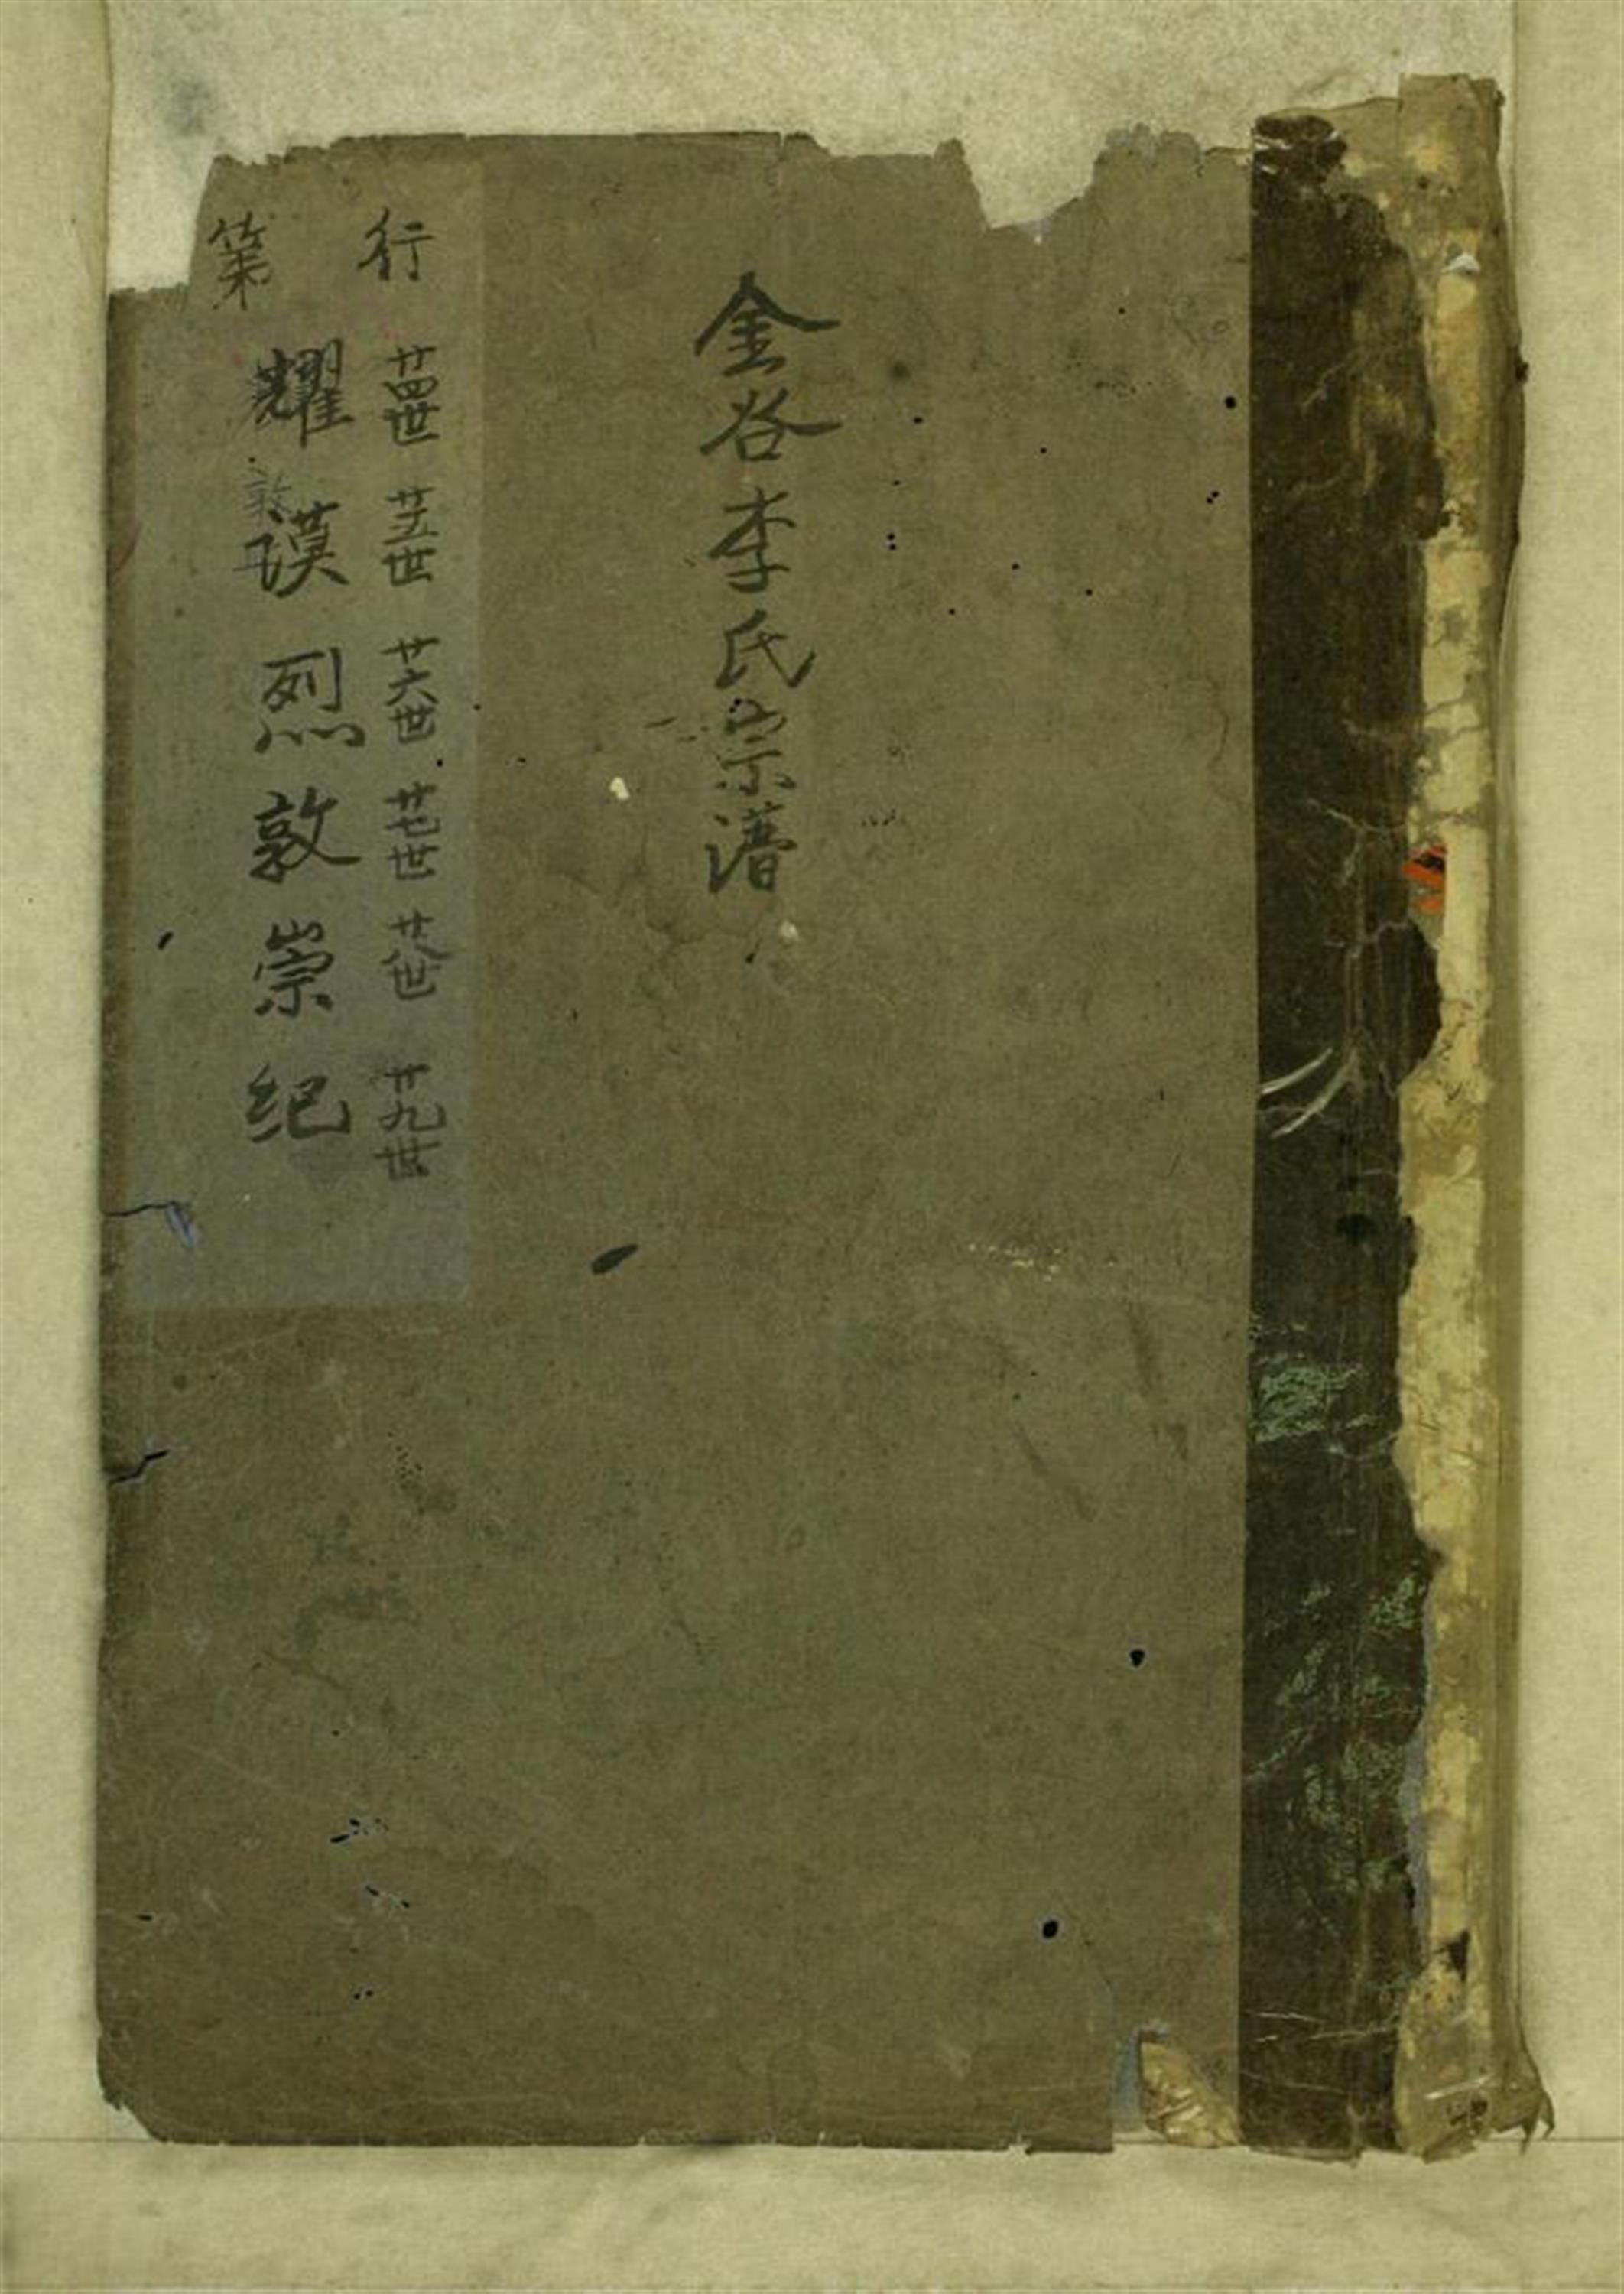 金谷李氏宗谱
行 廿四世 廿五世 廿六世 廿七世 廿八世 廿九世
第 耀 谟 烈 敦 崇 纪